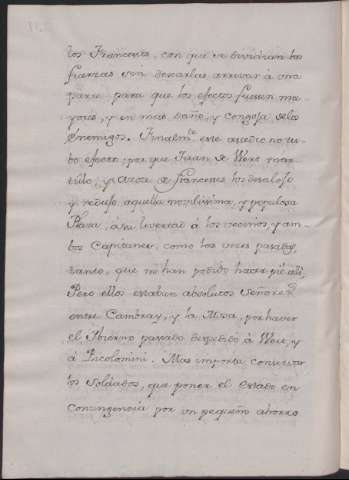 los Franceses, con que se dividirian las
fuerzas sin dexarlas arrivar à una
parte para que los efectos fuesen ma-
yores, y en mas daño, y congoja de los
Enemigos. Finalm.te este medio no tu-
bo efecto; por que Juan de Wert
y de franceses los desalojò
y reduxo aquella nobilissima, y populosa
Plaza, à su livertad à los vecinos, y am-
bos Capitanes, como los unos
tanto, que no han podido hacer pie alli,
Pero ellos estaban absolutos Señores
entre Cambray, y la Mosa, por haver
el Ibierno pasado despedido à Wert, y
à Picolomini. Mas importa conservar
los Soldados, que poner el Estado en
Contingencia por un pequeño ahorro